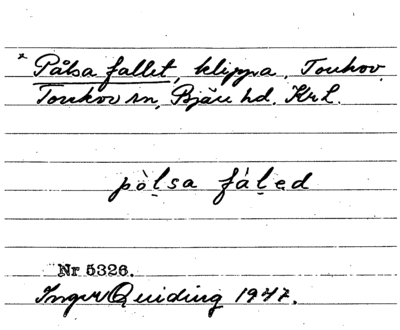 * Pålsa fallet, klippa, Torekov,
Torekov sn, Bjäre hd. Kr L.
pòl̥sa fál̥ed
Nr 5326.
Inger Quiding 1947.